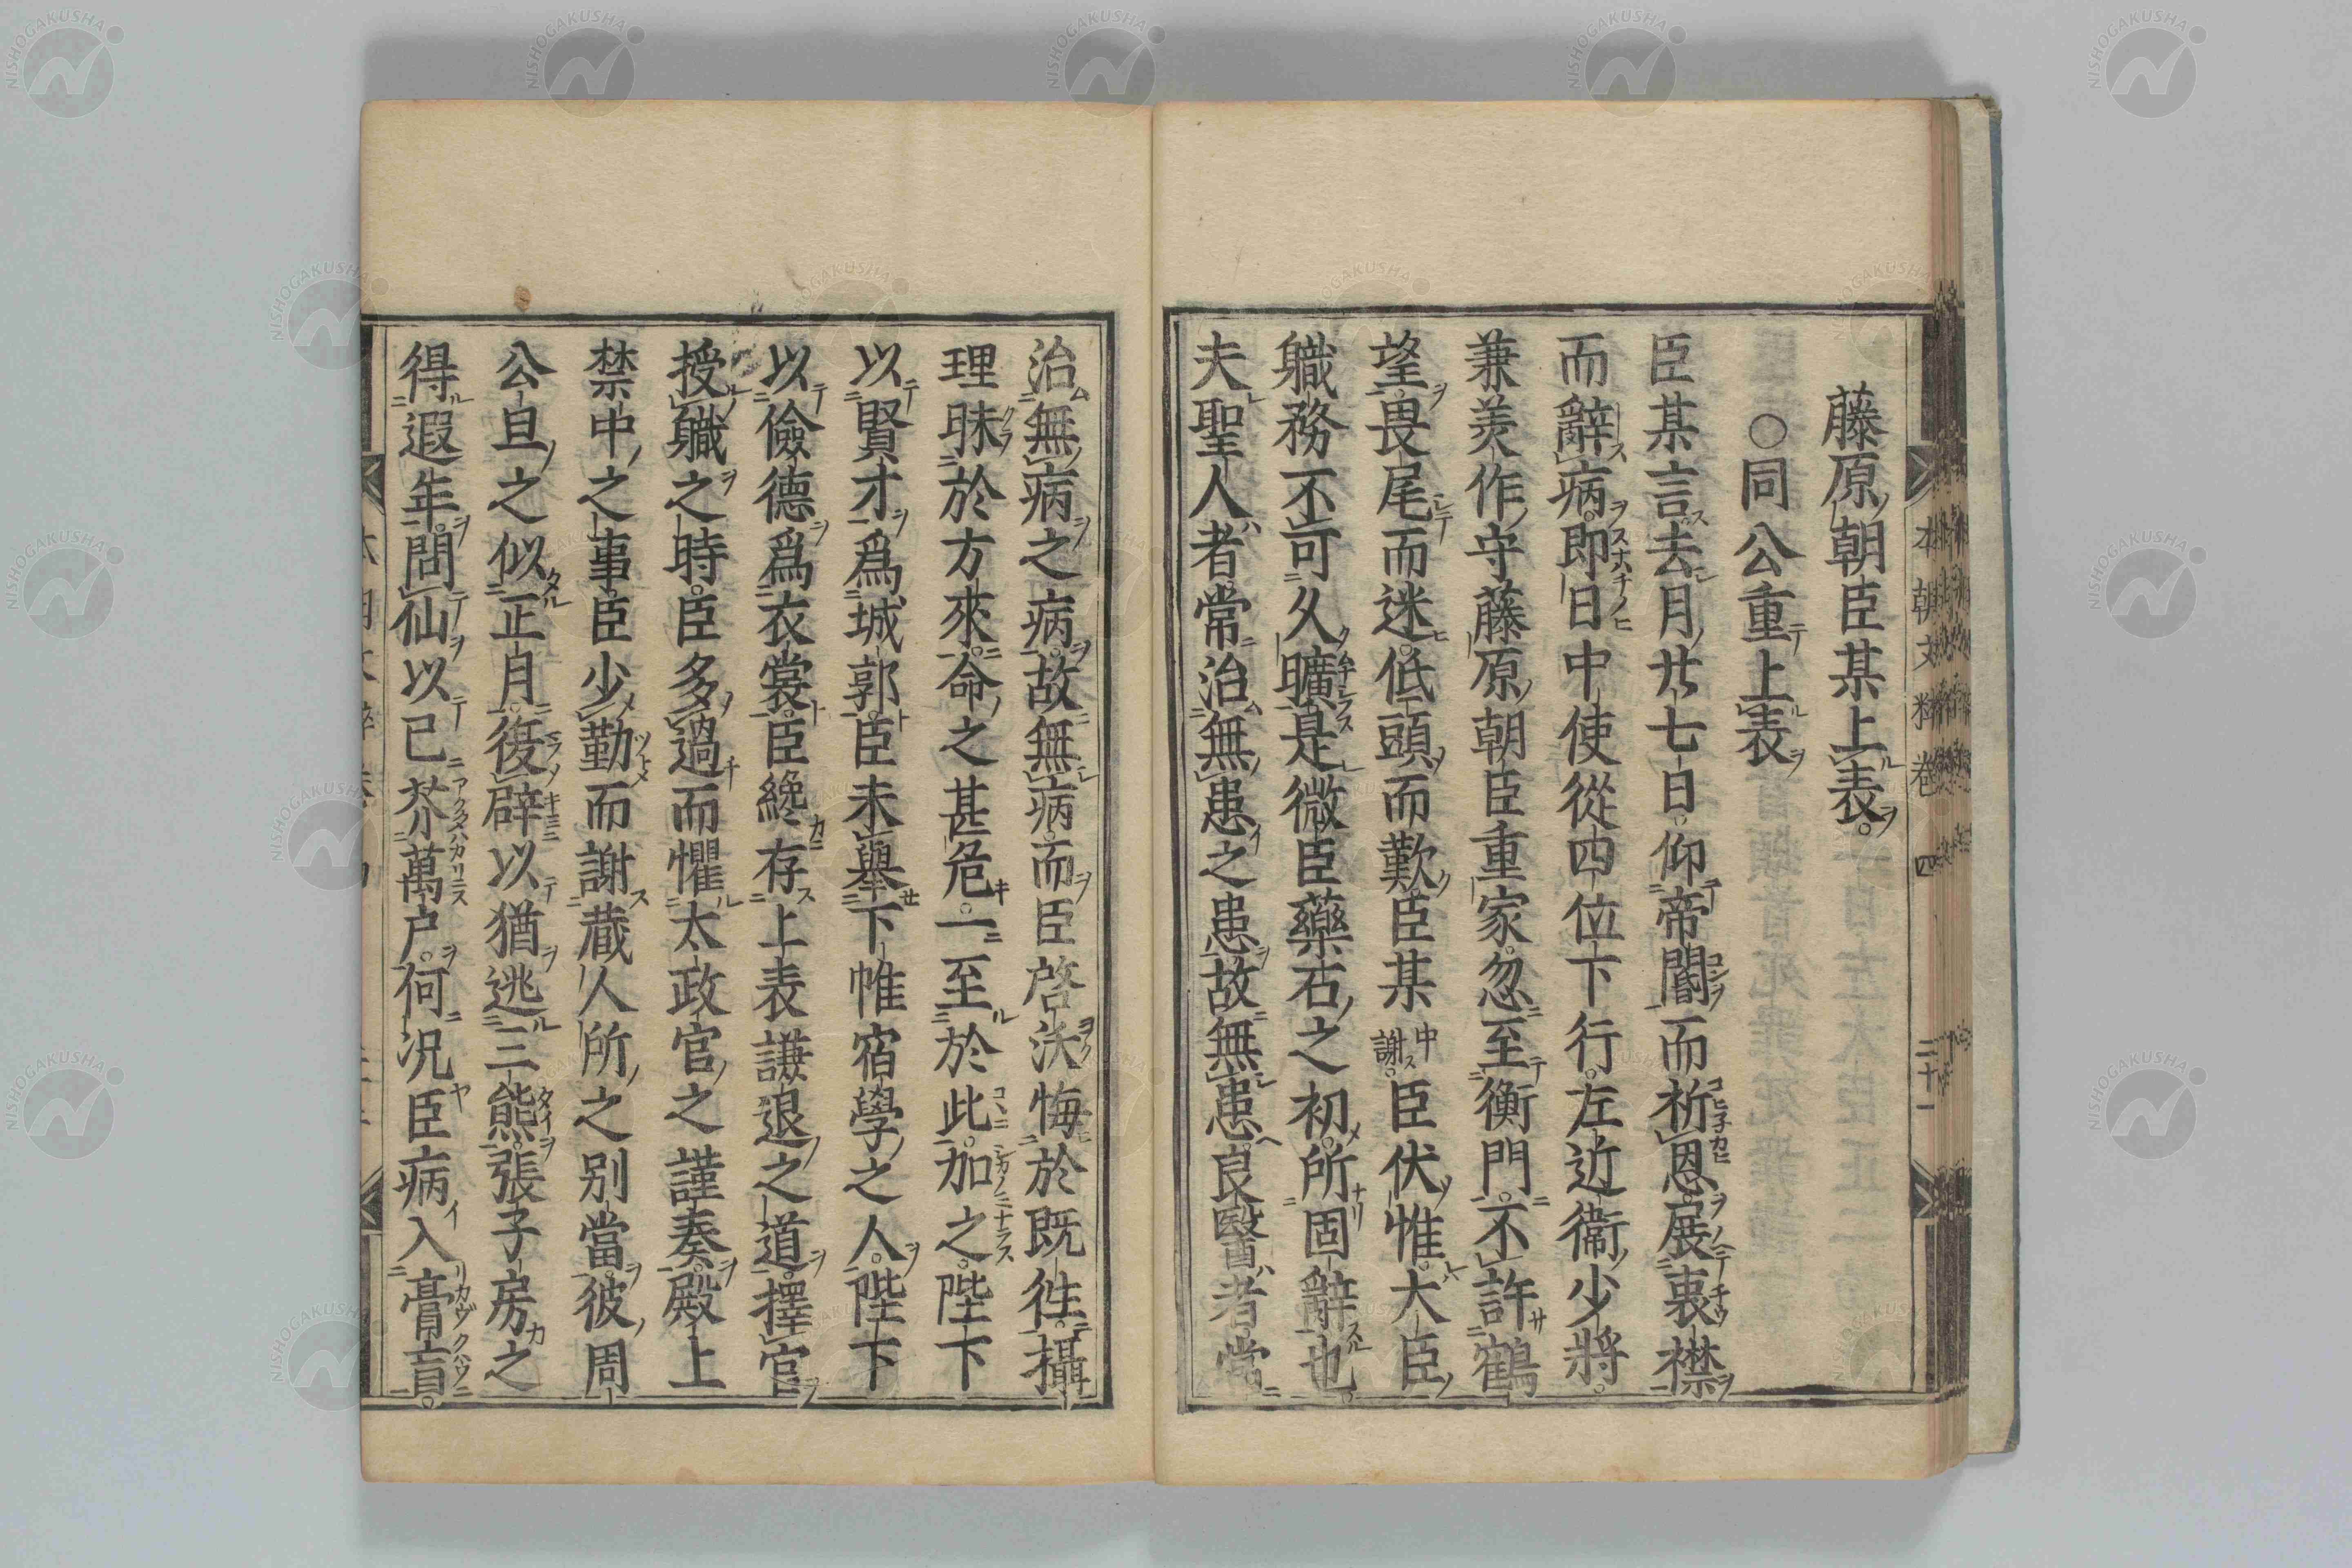 藤原朝臣某上表。
○同公重上表
臣某言去月廿七日。仰帝閽而祈恩。展衷襟
而辭病。即日中使從四位下行左近衞少將
兼美作守藤原朝臣重家。忽至衡門。不許鶴
望。畏尾而迷。低頭而歎。臣某中謝。臣伏惟。大臣
職務不可久曠。是微臣藥石之初。所固辭也。
夫聖人者常治無患之患。故無患。良醫者常
治無病之病。故無病。而臣啓沃悔於既往。攝
理昧於方來。命之甚危。一至於此。加之。陛下
以賢才爲城郭。臣未舉下帷宿學之人。陛下
以儉德爲衣裳。臣纔存上表謙退之道。擇官
授職之時。臣多過而懼太政官之謹奏。殿上
禁中之事。臣少勤而謝蔵人所之別當。彼周
公旦之似正月。復辟以猶逃三熊。張子房之
得遐年。問仙以已芥萬戸。何況臣病入膏肓。
本朝文粹卷四
二十一